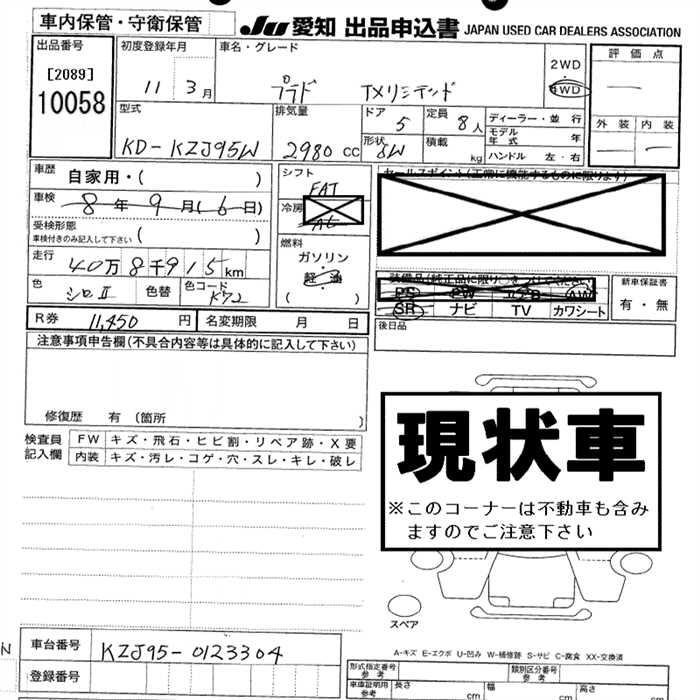 車内保管・守衛保管
JU 愛知 出品申込書 JAPAN USED CAR DEALERS ASSOCIATION
出品番号
[2089]
10058
初度登録年月
11 3月
車名・グレード
プラド TXリミテッド
2WD
4WD
評価点
外装 内装
型式
KD-KZJ95W
排気量
2980 CC
ドア
5
定員
8人
形状
SW
積載
kg
ディーラー・並行
モデル年式 年
ハンドル 左・右
車歴
自家用・( )
車検
8年9月(6日)
受検形態
車検付きのみ記入して下さい ( )
走行
40万8千915km
色
シロII
色替
色コード
K72
シフト
FAT
冷房
AC
燃料
ガソリン
軽油
( )
セールスポイント(正常に機能するものに限ります)
装備品(純正品に限り○をしてください)
PS PW エアB AW
SR ナビ TV カワシート
新車保証書
有・無
R券 11,450 円 名変期限 月 日
後日品
注意事項申告欄(不具合内容等は具体的に記入して下さい)
修復歴 有 (箇所
検査員記入欄
FW キズ・飛石・ヒビ割・リペア跡・X要
内装 キズ・汚レ・コゲ・穴・スレ・キレ・破レ
現状車
※このコーナーは不動車も含みますのでご注意下さい
スペア
A-キズ E-エクボ U-凹み W-補修跡 S-サビ C-腐食 XX-交換済
車台番号 KZJ95-0123304
登録番号
形式指定番号 参考
類別区分番号 参考
車庫証明用 参考
長さ 幅 高さ